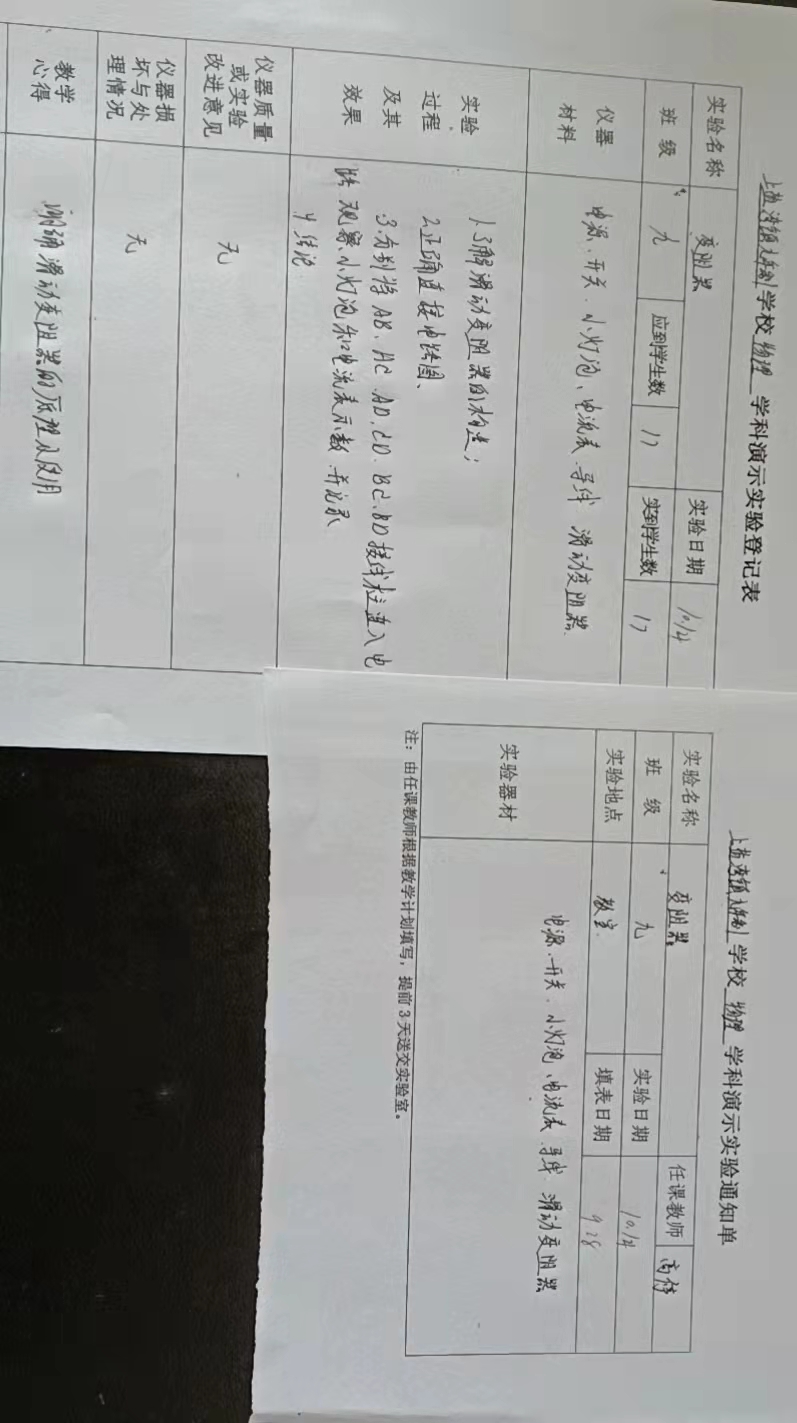 学校 物理 学科演示实验登记表
实验名称 变阻器 实验日期 10.14
班 级 九 应到学生数 17 实到学生数 17
仪器材料 电源、开关、小灯泡、电流表、导线 滑动变阻器
实验过程及其效果
1.了解滑动变阻器的构造;
2.正确连接电路图、
3.分别将AB、AC AD、CD、BC、BD接线柱连入电
路 观察小灯泡和电流表示数 并记录
4 结论
仪器质量或实验改进意见 无
仪器损坏与处理情况 无
教学心得 明确滑动变阻器的原理及使用
学校 物理 学科演示实验通知单
实验名称 变阻器 任课教师
班 级 九 实验日期 10.14
实验地点 教室 填表日期 9.28
实验器材 电源、开关、小灯泡、电流表 导线 滑动变阻器
注：由任课教师根据教学计划填写，提前 3 天送交实验室。